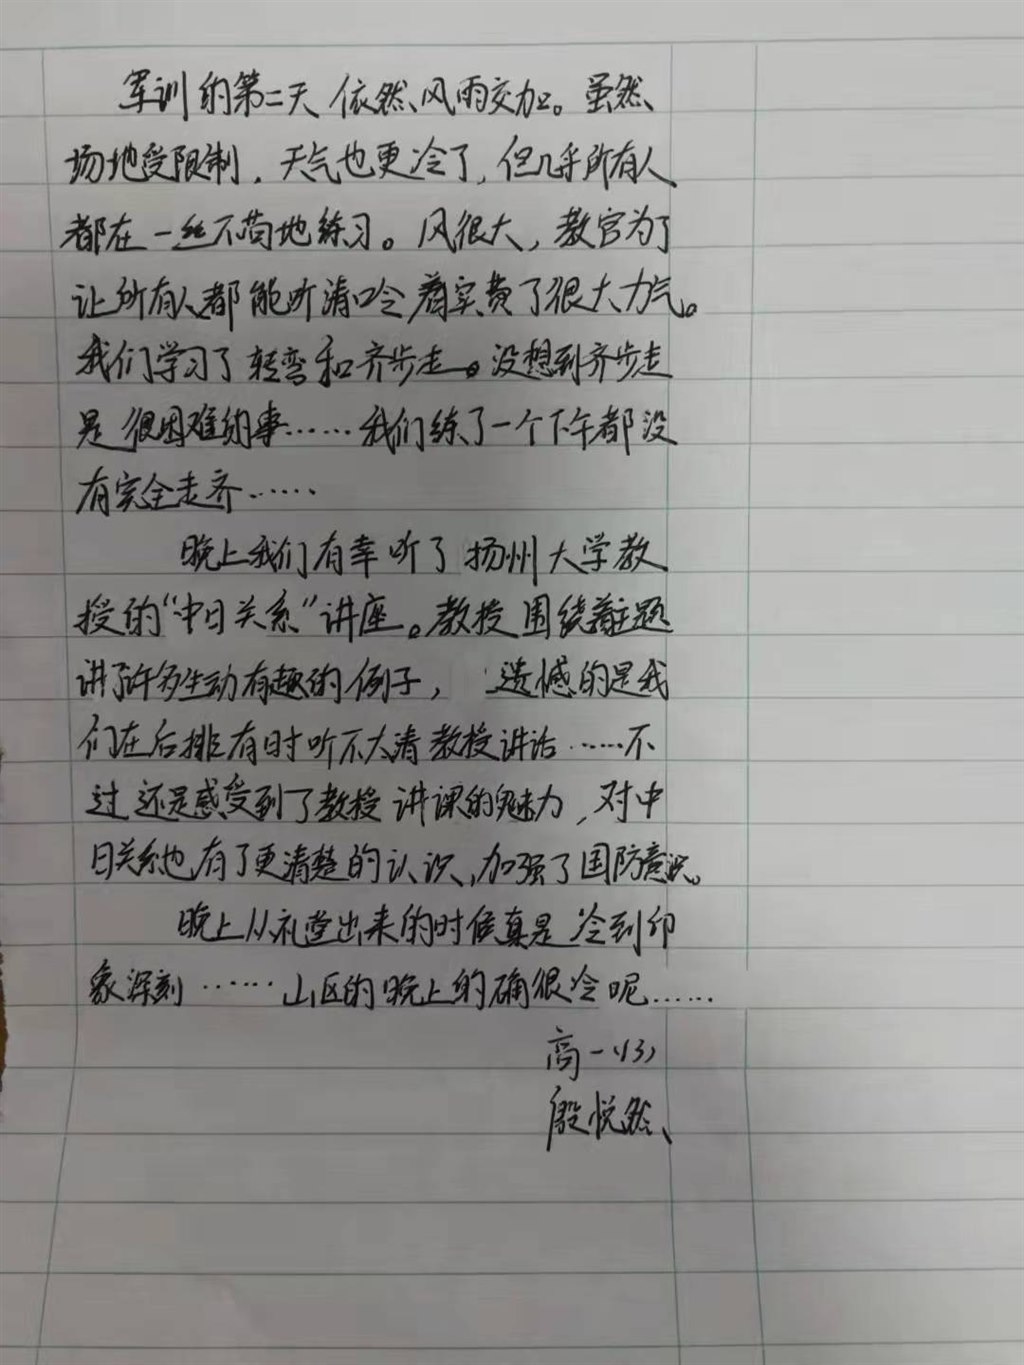 军训的第二天依然风雨交加。虽然
场地受限制，天气也更冷了，但几乎所有人
都在一丝不苟地练习。风很大，教官为了
让所有人都能听清口令着实费了很大力气。
我们学习了转弯和齐步走。没想到齐步走
是很困难的事……我们练了一个下午都没
有完全走齐……
晚上我们有幸听了扬州大学教
授的“中日关系”讲座。教授围绕着主题
讲了许多生动有趣的例子，遗憾的是我
们在后排有时听不太清教授讲话……不
过还是感受到了教授讲课的魅力，对中
日关系也有了更清楚的认识，加强了国防意识。
晚上从礼堂出来的时候真是冷到印
象深刻……山区的晚上的确很冷呢……
高一（3）
殷悦然